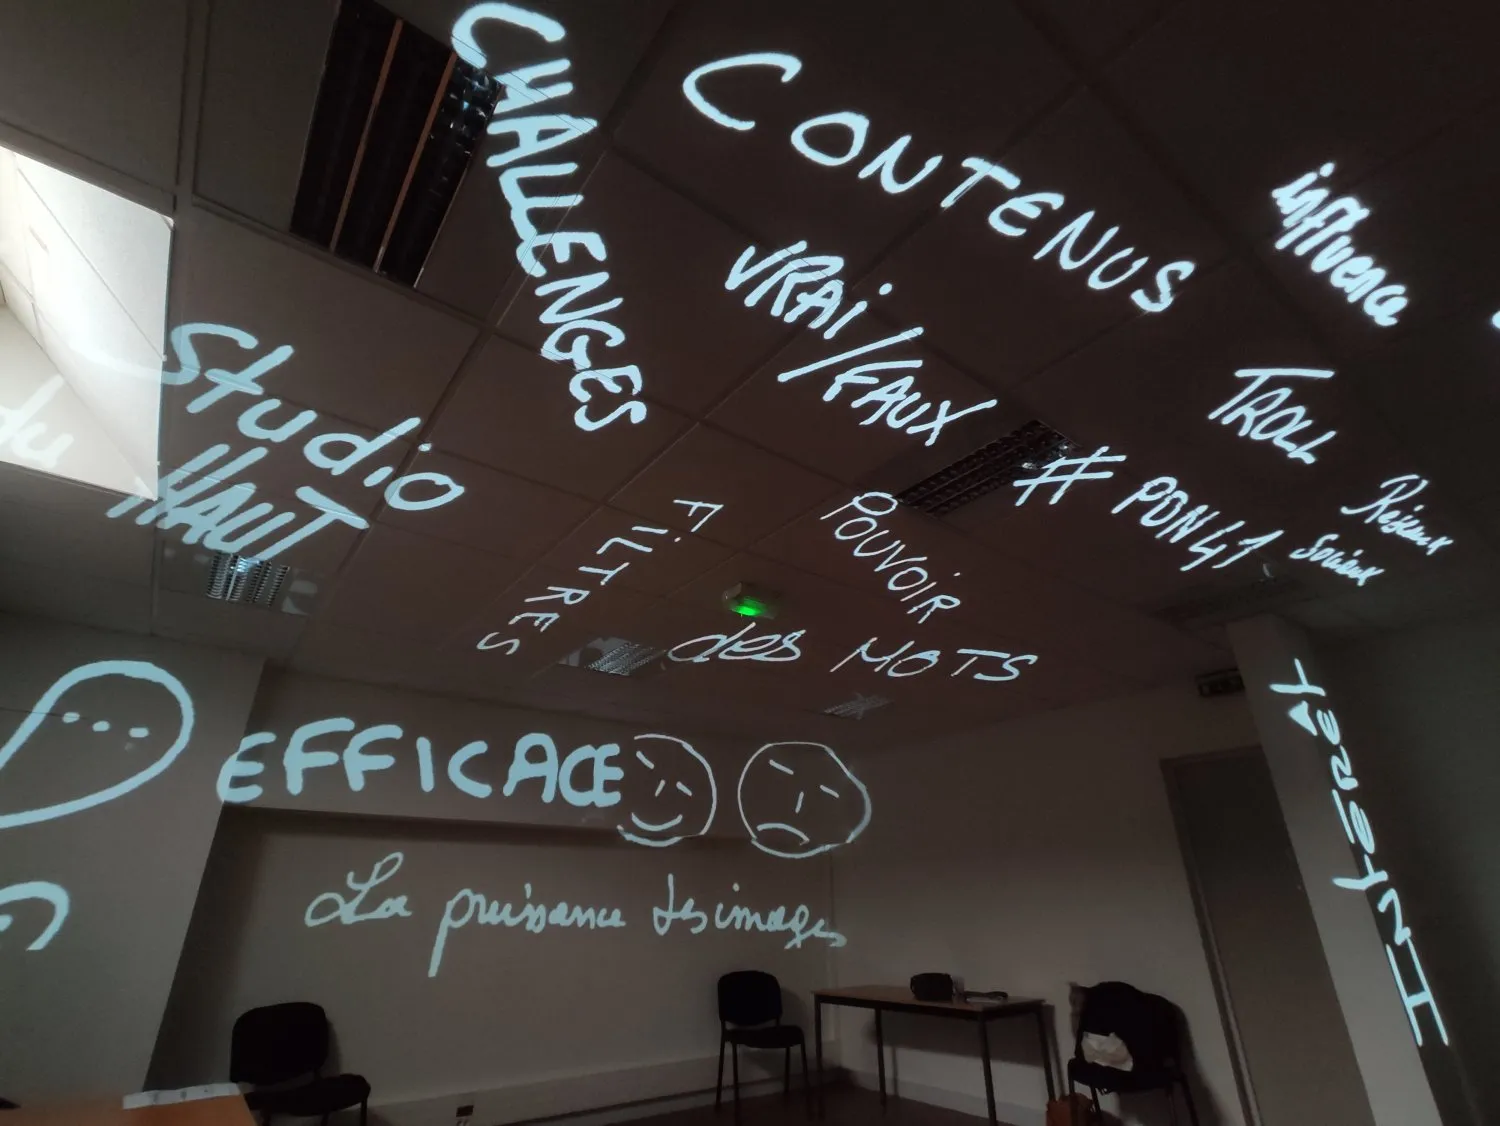 CHALLENGES
CONTENUS
influence
VRAI/FAUX
TROLL
Studio
du HAUT
# PDN41
Réseaux
Sociaux
FILTRES
POUVOIR
des MOTS
EFFICACE
La puissance des images